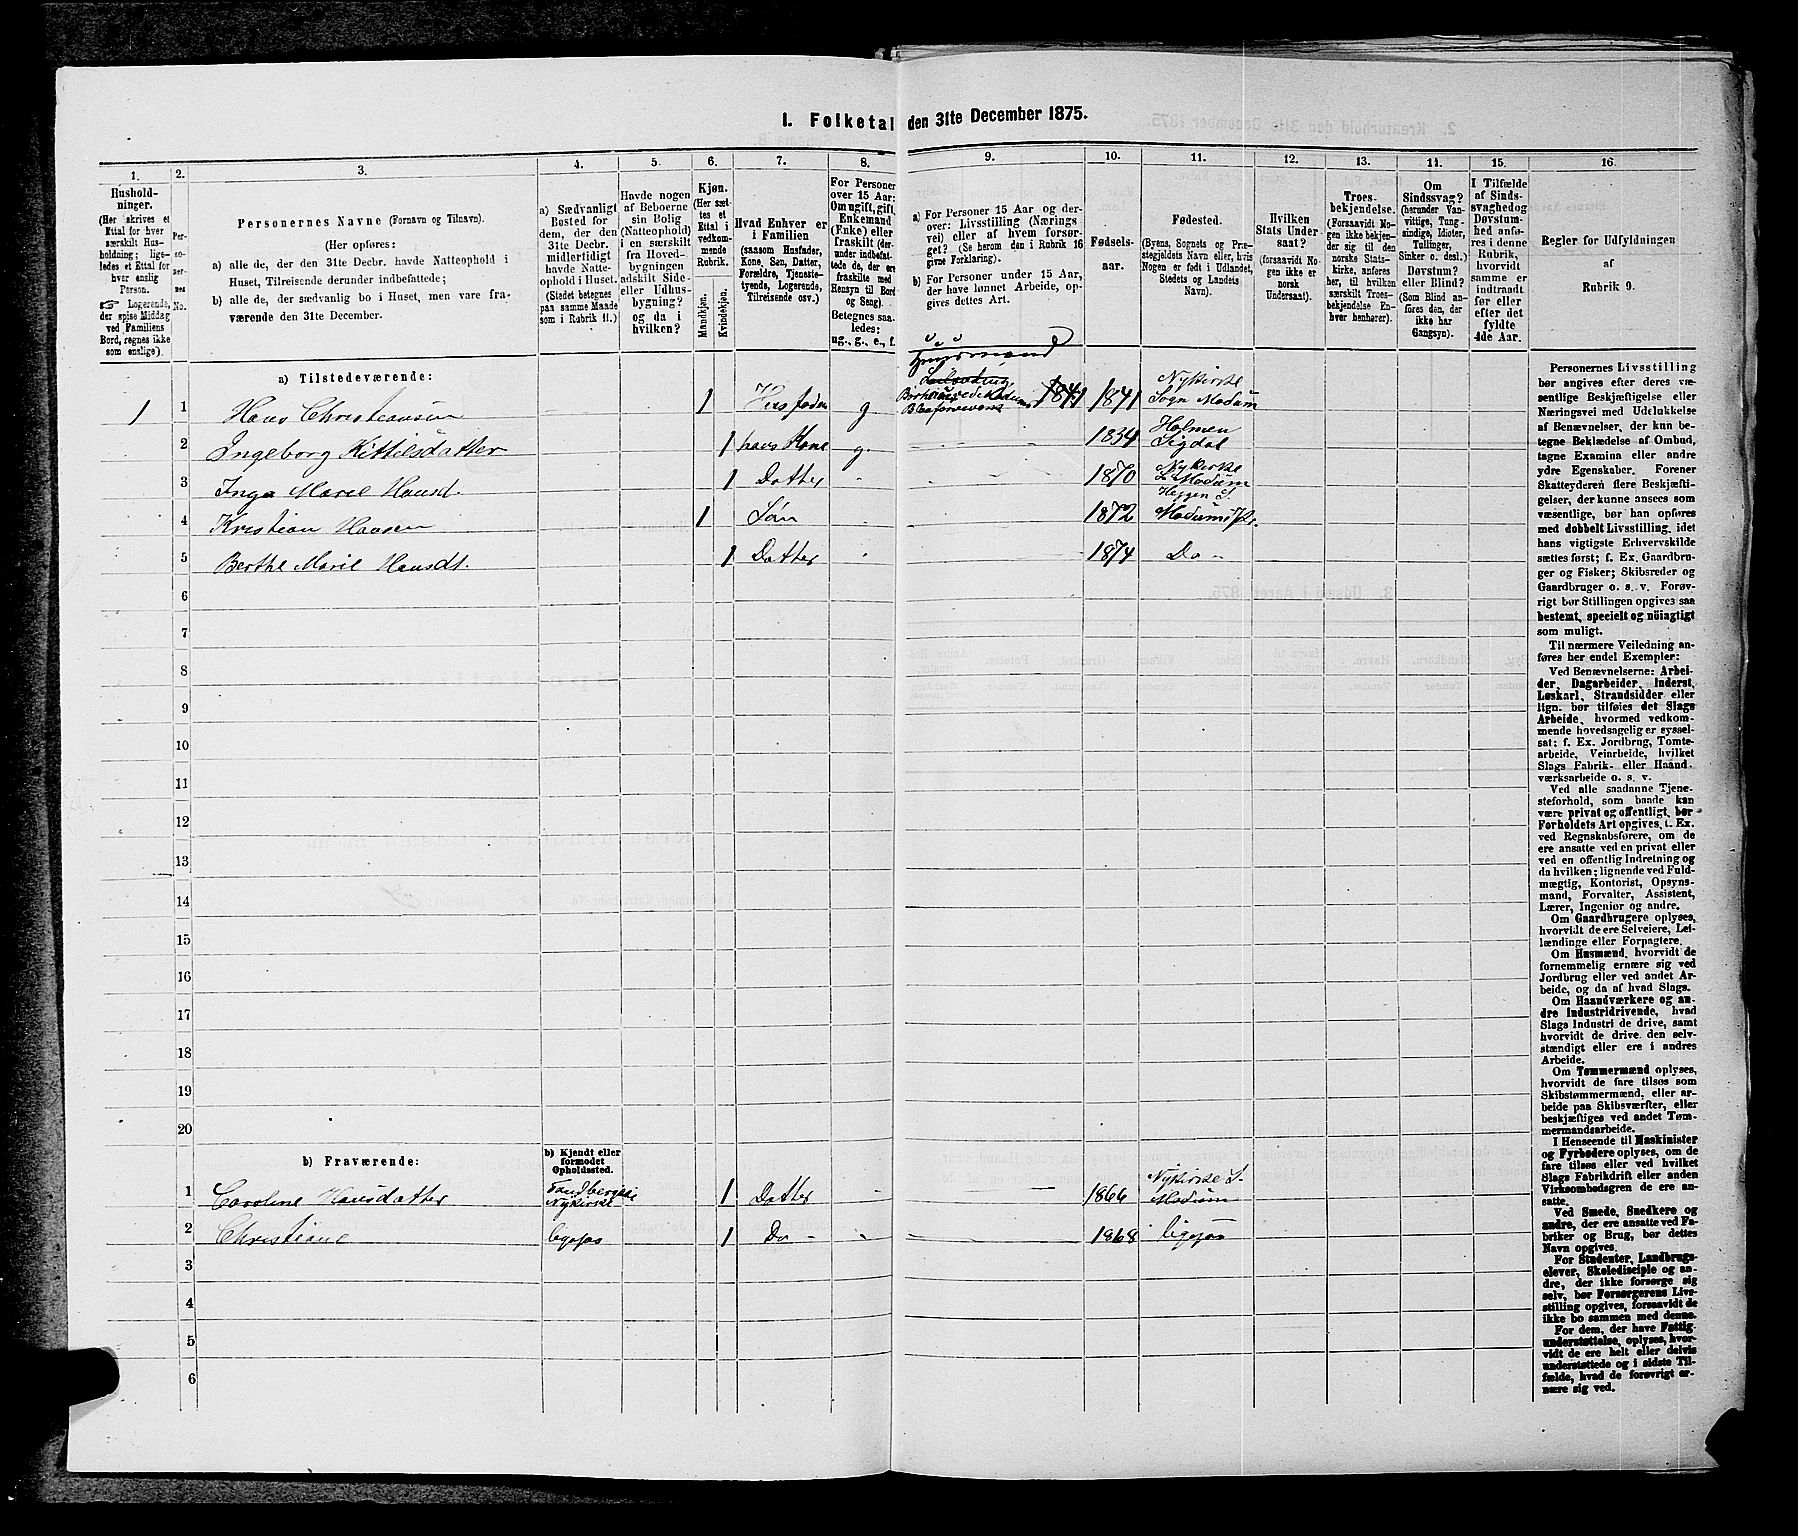 1. Folketal den 31te December 1875.
1. 2. 3. 4. 5. 6. 7. 8. 9. 10. 11. 12. 13. 11. 15. 16.
Hushold-
ninger.
(Her skrives et
Ettal for hver
særskilt Hus-
holdning; lige-
ledes et Ettal for
hver enslig
Person.
☞ Logerende,
der spise Middag
ved Familiens
Bord, regnes ikke
som enslige).
Per-
so-
ner-
nes
No.
Personernes Navne (Fornavn og Tilnavn).
(Her opføres:
a) alle de, der den 31te Decbr. havde Natteophold i
Huset, Tilreisende derunder indbefattede;
b) alle de, der sædvanlig bo i Huset, men vare fra-
værende den 31te December.
a) Sædvanligt
Bosted for
dem, der den
31te Decbr.
midlertidigt
havde Natte-
ophold i Huset.
(Stedet betegnes
paa samme Maade
som i Rubrik 11.)
Havde nogen
af Beboerne
sin Bolig
(Natteophold)
i en særskilt
fra Hoved-
bygningen
adskilt Side-
eller Udhus-
bygning?
og da i
hvilken?
Kjøn.
(Her sæt-
tes et
Ettal i
vedkom-
mende
Rubrik.
Mandkjøn.
Kvindekjøn.
Hvad Enhver er
i Familien
(saasom Husfader,
Kone, Søn, Datter,
Forældre, Tjeneste-
tyende, Logerende,
Tilreisende osv.)
For Personer
over 15 Aar:
Om ugift, gift,
Enkemand
(Enke) eller
fraskilt (der-
under indbefat-
tede de, der ere
fraskilte med
Hensyn til Bord
og Seng).
Betegnes saa-
ledes:
ug., g., e., f.
a) For Personer 15 Aar og der-
over: Livsstilling (Nærings
vei) eller af hvem forsør-
get? (Se herom den i Rubrik 16
givne Forklaring).
b) For Personer under 15 Aar,
der have lønnet Arbeide, op-
gives dettes Art.
Fødsels-
aar.
Fødested.
(Byens, Sognets og Præ-
stegjeldets Navn eller, hvis
Nogen er født i Udlandet,
Stedets og Landets
Navn).
Hvilken
Stats Under-
saat?
(forsaavidt No-
gen ikke er
norsk
Undersaat).
Troes-
bekjendelse.
(Forsaavidt No-
gen ikke bekjen-
der sig til den
norske Stats-
kirke, anføres
her, til hvilken
særskilt Troes-
bekjendelse En-
hver henhører).
Om
Sindssvag?
(herunder Van-
vittige, Tung-
sindige, Idioter,
Tullinger,
Sinker o. desl.)
Døvstum?
eller Blind?
(Som Blind an-
føres den, der
ikke har
Gangsyn).
I Tilfælde
af Sinds-
svaghed og
Døvstum-
hed anfø-
res i denne
Rubrik,
hvorvidt
samme er
indtraadt
før eller
efter det
fyldte
4de Aar.
Regler for Udfyldningen
af
Rubrik 9.
a) Tilstedeværende:
Huusmand
1 1 Hans Christiansen 1 Husfader g 1841 1841 Nykirke Sogn Modum
2 Ingeborg Kittilsdatter 1 hans Kone g. 1834 Holmen Sigdal
3 Inga Marie Hansd. 1 Datter 1870 Nykirke S Modum
4 Kristian Hansen 1 Søn 1872 Heggen S. Modums Pr.
5 Berthe Marie Hansdt. 1 Datter 1874 Do
6
7
8
9
10
11
12
13
14
15
16
17
18
19
20
b) Fraværende:
b) Kjendt eller
formodet
Opholdssted.
1 Caroline Hansdatter Nykirke 1 Datter 1866 Nykirke S. Modum
2 Christiane ligesaa 1 Do 1868 ligesaa
3
4
5
6
Personernes Livsstilling
bør angives efter deres væ-
sentlige Beskjæftigelse eller
Næringsvei med Udelukkelse
af Benævnelser, der kun be-
tegne Beklædelse af Ombud,
tagne Examina eller andre
ydre Egenskaber. Forener
Skatteyderen flere Beskjæfti-
gelser, der kunne ansees som
væsentlige, bør han opføres
med dobbelt Livsstilling, idet
hans vigtigste Erhvervskilde
sættes først; f. Ex. Gaardbru-
ger og Fisker; Skibsreder og
Gaardbruger o. s. v. Forøv-
rigt bør Stillingen opgives saa
bestemt, specielt og nöiagtigt
som muligt.
Til nærmere Veiledning an-
føres her endel Exempler:
Ved Benævnelserne: Arbei-
der, Dagarbeider, Inderst,
Løskarl, Strandsidder eller
lign. bør tilføies det Slags
Arbeide, hvormed vedkom-
mende hovedsagelig er syssel-
sat; f. Ex. Jordbrug, Tomte-
arbeide, Veiarbeide, hvilket
Slags Fabrik- eller Haand-
værksarbeide o. s. v.
Ved alle saadanne Tjene-
steforhold, som baade kan
være privat og offentligt, bør
Forholdets Art opgives, t. Ex.
ved Regnskabsførere, om de
ere ansatte ved en privat eller
ved en offentlig Indretning og
da hvilken; lignende ved Fuld-
mægtig, Kontorist, Opsyns-
mand, Forvalter, Assistent,
Lærer, Ingeniør og andre.
Om Gaardbrugere oplyses,
hvorvidt de ere Selveiere, Lei-
lændinge eller Forpagtere.
Om Husmænd, hvorvidt de
fornemmelig ernære sig ved
Jordbrug eller ved andet Ar-
beide, og da af hvad Slags.
Om Haandværkere og an-
dre Industridrivende, hvad
Slags Industri de drive, samt
hvorvidt de drive den selv-
stændigt eller ere i andres
Arbeide.
Om Tømmermænd oplyses,
hvorvidt de fare tilsøs som
Skibstømmermænd, eller ar-
beide paa Skibsværfter, eller
beskjæftiges ved andet Tøm-
mermandsarbeide.
I Henseende til Maskinister
og Fyrbødere oplyses, om de
fare tilsøs eller ved hvilket
Slags Fabrikdrift eller anden
Virksomhedsgren de ere an-
satte.
Ved Smede, Snedkere og
andre, der ere ansatte ved Fa-
briker og Brug, bør dettes
Navn opgives.
For Studenter, Landbrugs-
elever, Skoledisciple og an-
dre, der ikke forsørge sig
selv, bør Forsørgerens Livs-
stilling opgives, forsaavidt de
ikke bo sammen med denne.
For dem, der have Fattig-
understøttelse, oplyses, hvor-
vidt de ere helt eller delvis
understøttede og i sidste Til-
fælde, hvad de forøvrigt er-
nære sig ved.